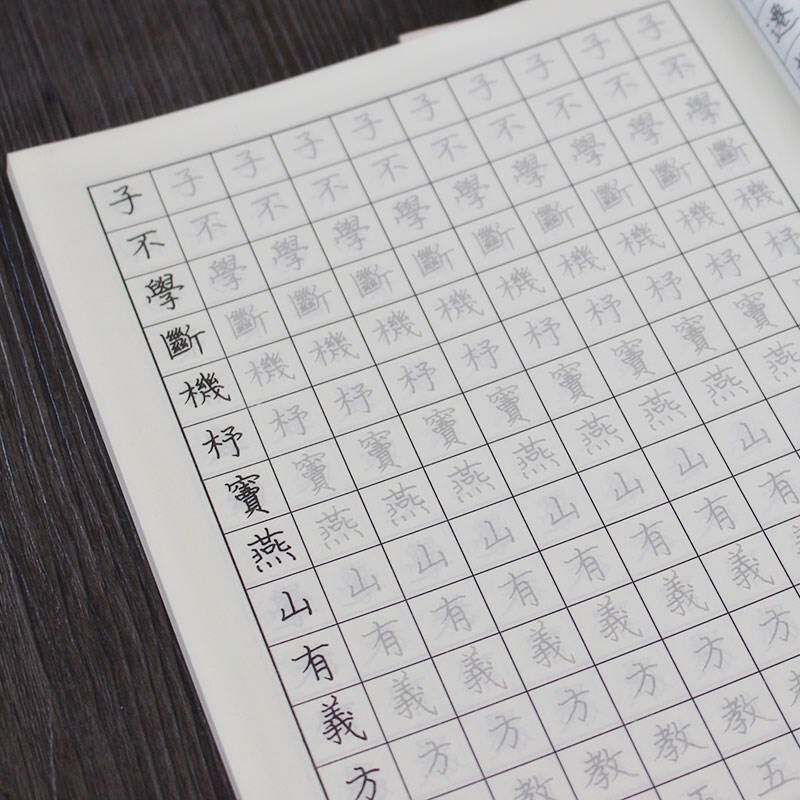 子子子子子子子子子子
不不不不不不不不不不
學學學學學學學學學學
斷斷斷斷斷斷斷斷斷斷
機機機機機機機機機機
杼杼杼杼杼杼杼杼杼杼
竇竇竇竇竇竇竇竇竇
燕燕燕燕燕燕燕燕燕
山山山山山山山山
有有有有有有有有
義義義義義義義
方方方方方方方
教教教教
五